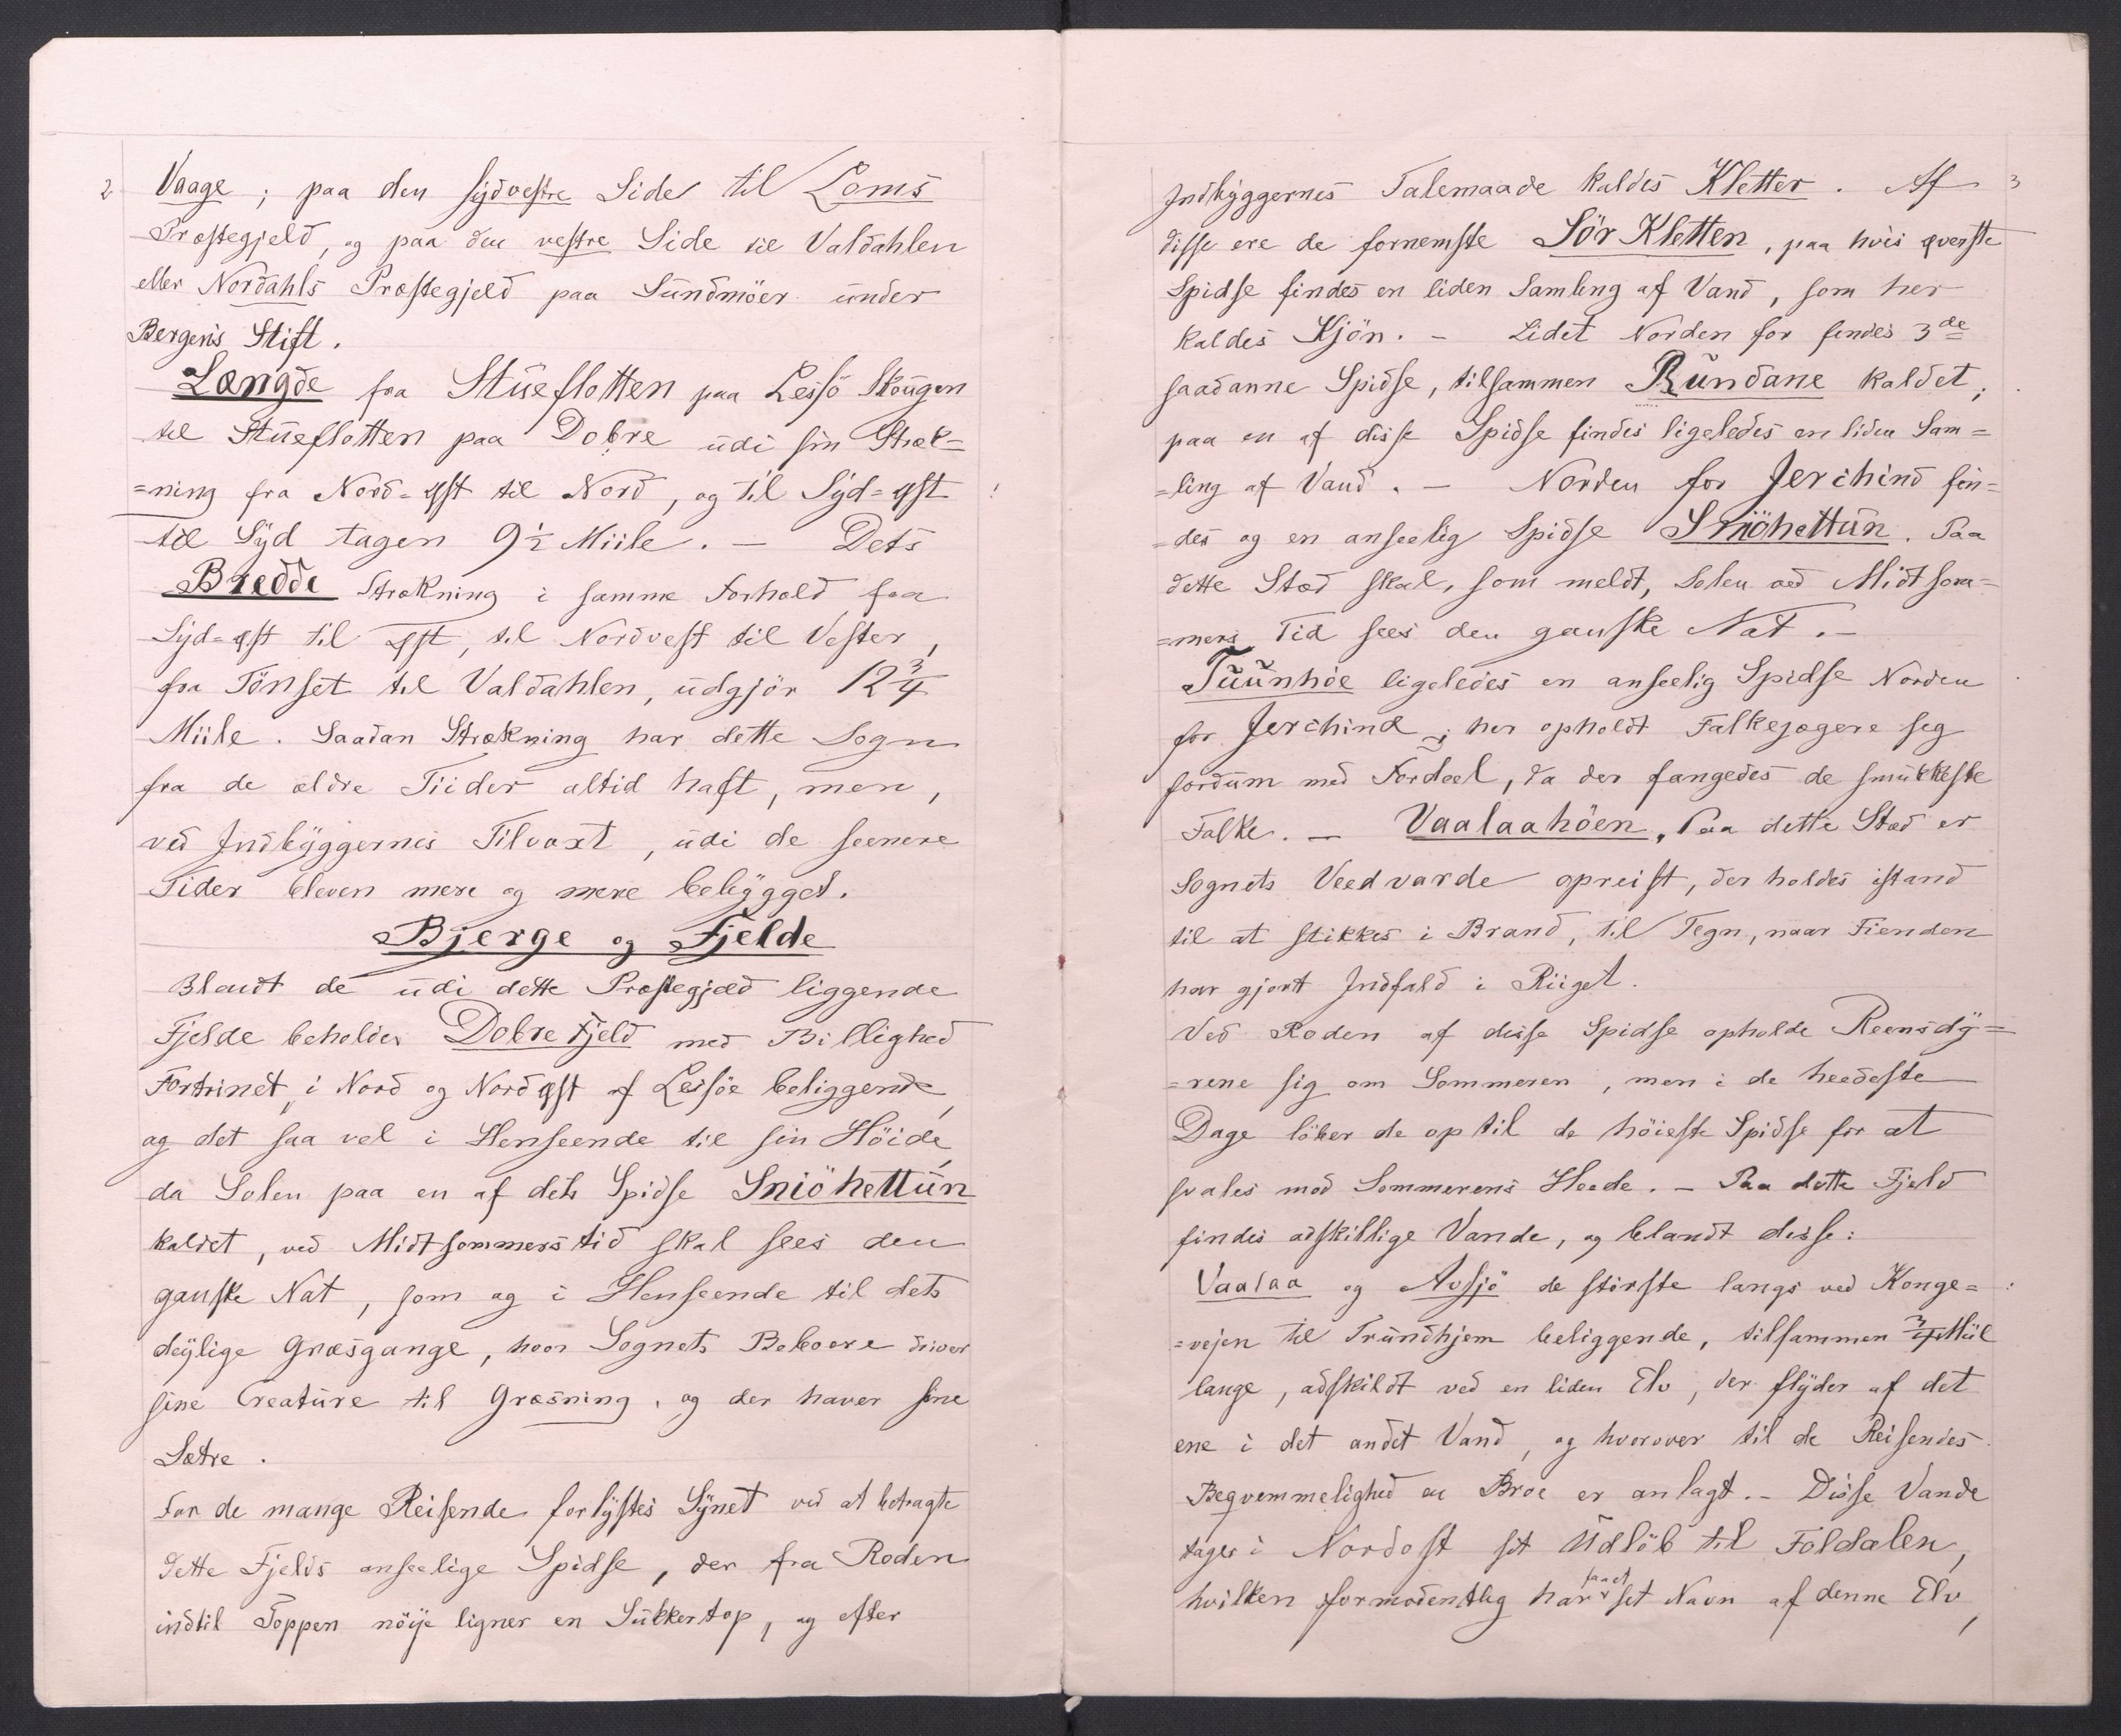 2 Vaage; paa den sydvestre Side til Loms
Præstegjeld, og paa den vestre Side til Valdahlen
eller Nordahls Præstegjeld paa Sundmöer under
Bergens Stift.
Længde fra Stueflotten paa Lessö Skougen
til Stueflotten paa Dobre udi sin Stræk=
=ning fra Nord=Øst til Nord, og til Syd=Øst
til Syd tagen 9½ Miile. — Dets
Bredde Strækning i samme Forhold fra
Syd=Øst til Øst, til Nordvest til Vester,
fra Tönset til Valdahlen, udgjör 12¾
Miile. Saadan Strækning har dette Sogn
fra de ældre Tiider altid haft, men,
ved Indbyggernes Tilvæxt, udi de seenere
Tider bleven mere og mere bebygget.
Bjerge og Fjelde
Blandt de udi dette Præstegjæld liggende
Fjelde beholder Dobrefjeld med Billighed
Fortrinet, i Nord og NordØst af Lessöe beliggende,
og det saa vel i Henseende til sin Höide,
da Solen paa en af dets Spidse Sniöhettun
kaldet, ved Midtsommers tid skal sees den
ganske Nat, som og i Henseende til dets
deylige Græsgange, hvor Sognets Beboere driver
sine Creature til Græsning, og der haver sine
Sætre.
For de mange Reisende forlystes Synet ved at betragte
dette Fjelds anseelige Spidse, der fra Roden
indtil Toppen nöije ligner en Sukkertop, og efter
Indbyggernes Talemaade kaldes Kletter. Af 3
disse ere de fornemste Sör Kletten, paa hvis øverste
Spidse findes en liden Samling af Vand, som her
kaldes Kjön. — Lidet Norden for findes 3de
saadanne Spidse, tilsammen Rundane kaldet;
paa en af disse Spidse findes ligeledes en liden Sam=
=ling af Vand. — Norden for Jerchind fin=
=des og en anseelig Spidse Sniöhettun. Paa
dette Stæd skal, som meldt, Solen ved Midtsom=
=mers Tid sees den ganske Nat. —
Tuunhöe ligeledes en anseelig Spidse Norden
for Jerchind; her opholdt Falkejægere seg
fordum med Fordeel, da der fangedes de smukkeste
Falke. — Vaalaahöen. Paa dette Stæd er
Sognets Veedvarde opreist, der holdes istand
til at stikkes i Brand, til Tegn, naar Fienden
har gjort Indfald i Riiget.
Ved Roden af disse Spidse opholde Reensdy=
=rene sig om Sommeren, men i de heedeste
Dage löber de op til de höieste Spidse for at
svales mod Sommerens Heede. — Paa dette Fjeld
findes adskillige Vande, og blandt disse:
Vaalaa og Avsjö de störste langs ved Konge=
=vejen til Trundhjem beliggende, tilsammen ¾ Miil
lange, adskildt ved en liden Elv, der flyder af det
ene i det andet Vand, og hvorover til de Reisendes
Beqvemmelighed en Broe er anlagt. — Disse Vande
tager i Nordost sit Udlöb til Foldalen,
hvilken formodentlig har faaet sit Navn af denne Elv,